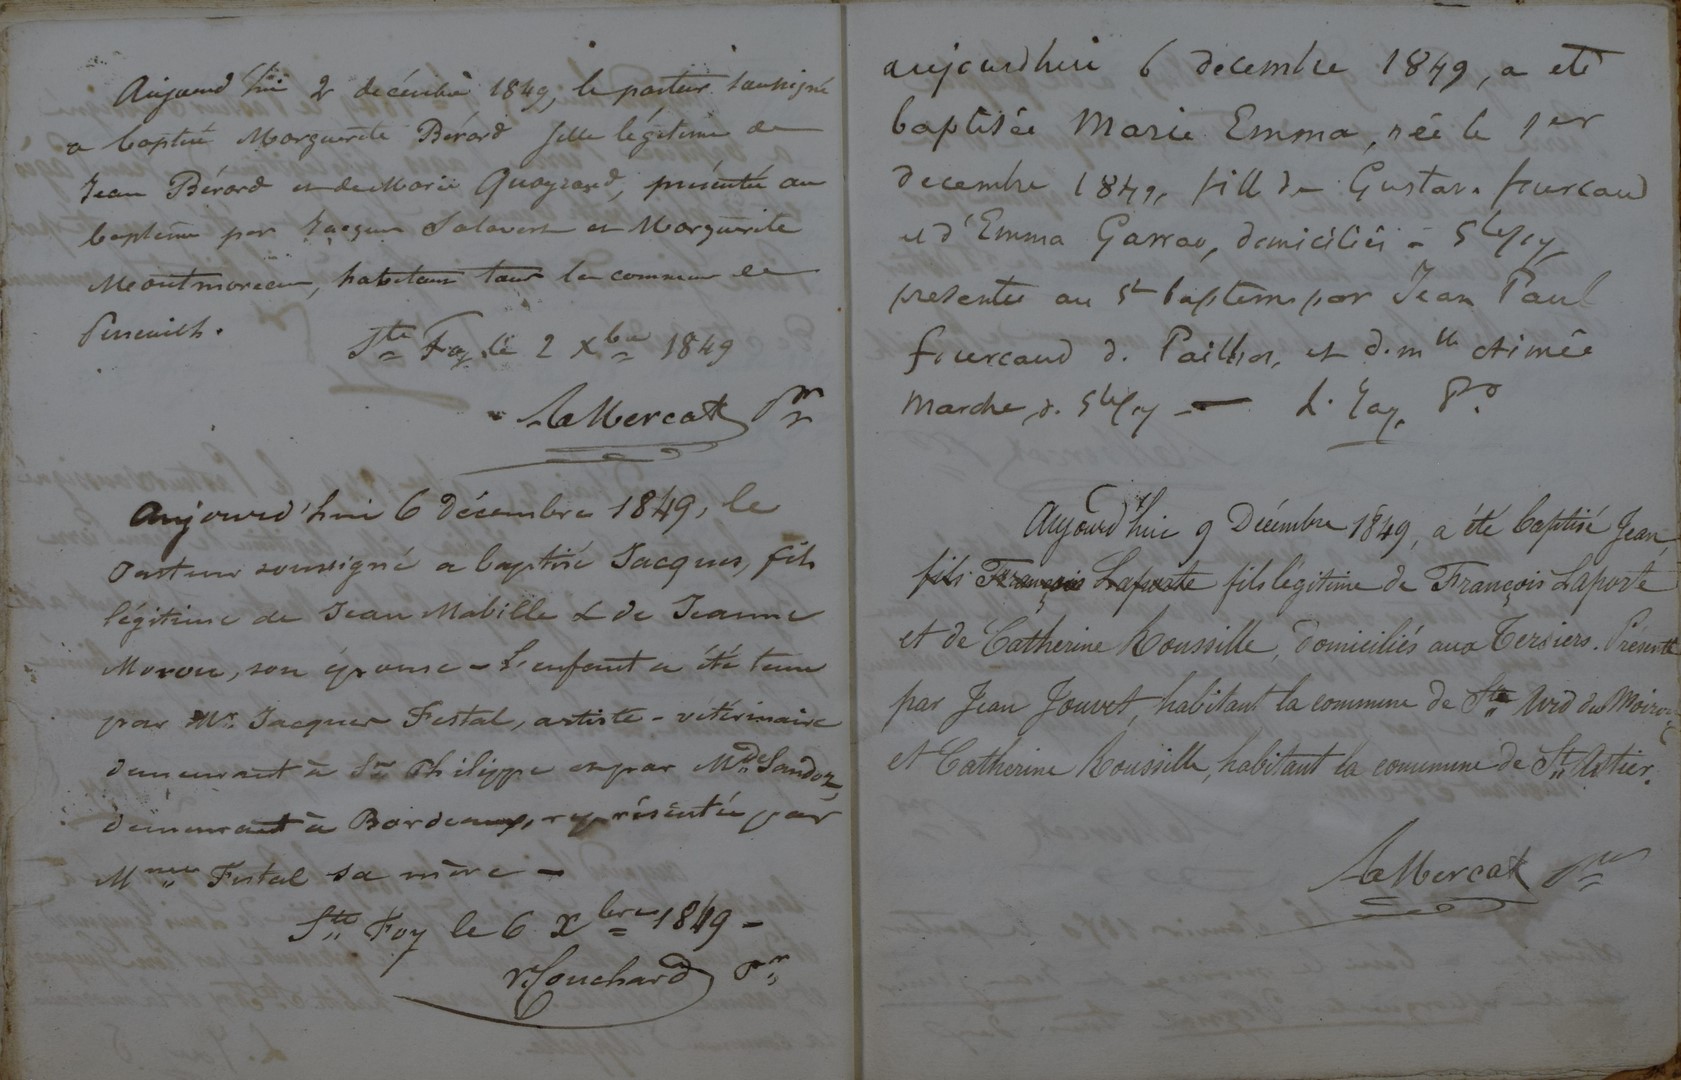 Aujourd'hui 2 décembre 1849, le pasteur soussigné
a baptisé Marguerite Bérard fille légitime de
Jean Bérard et de Marie présentée au
baptême par Jacques et Marguerite
habitans tous la commune de
Ste Foy le 2 Xbre 1849
LaMercat Pr
Aujourd'hui 6 Décembre 1849, le
Pasteur soussigné a baptisé Jacques, fils
légitime de Jean Mabille & de Jeanne
Moron, son épouse – L'enfant a été tenu
par Mr. Jacques Festal, artiste-vétérinaire
demeurant à St Philippe et par Mde Sandoz,
demeurant à Bordeaux, représentée par
Mme Festal sa mère –
Ste Foy le 6 Xbre 1849 –
Couchard Pr
aujourdhui 6 decembre 1849, a eté
baptisée Marie Emma, née le 1er
decembre 1849, fill de Gustave fourcaud
et d'Emma Garrau, domiciliés à Ste foy
presentee au St baptême par Jean Paul
fourcaud d. et d. mlle Aimée
Marche, d. Ste foy — Pr
Aujourd'hui 9 Décembre 1849, a été baptisé Jean,
fils François Laporte fils légitime de François Laporte
et de Catherine Roussille, domiciliés aux Tersiers. Présenté
par Jean Jouvet, habitant la commune de
et Catherine Roussille, habitant la commune de St Astier.
LaMercat Pr